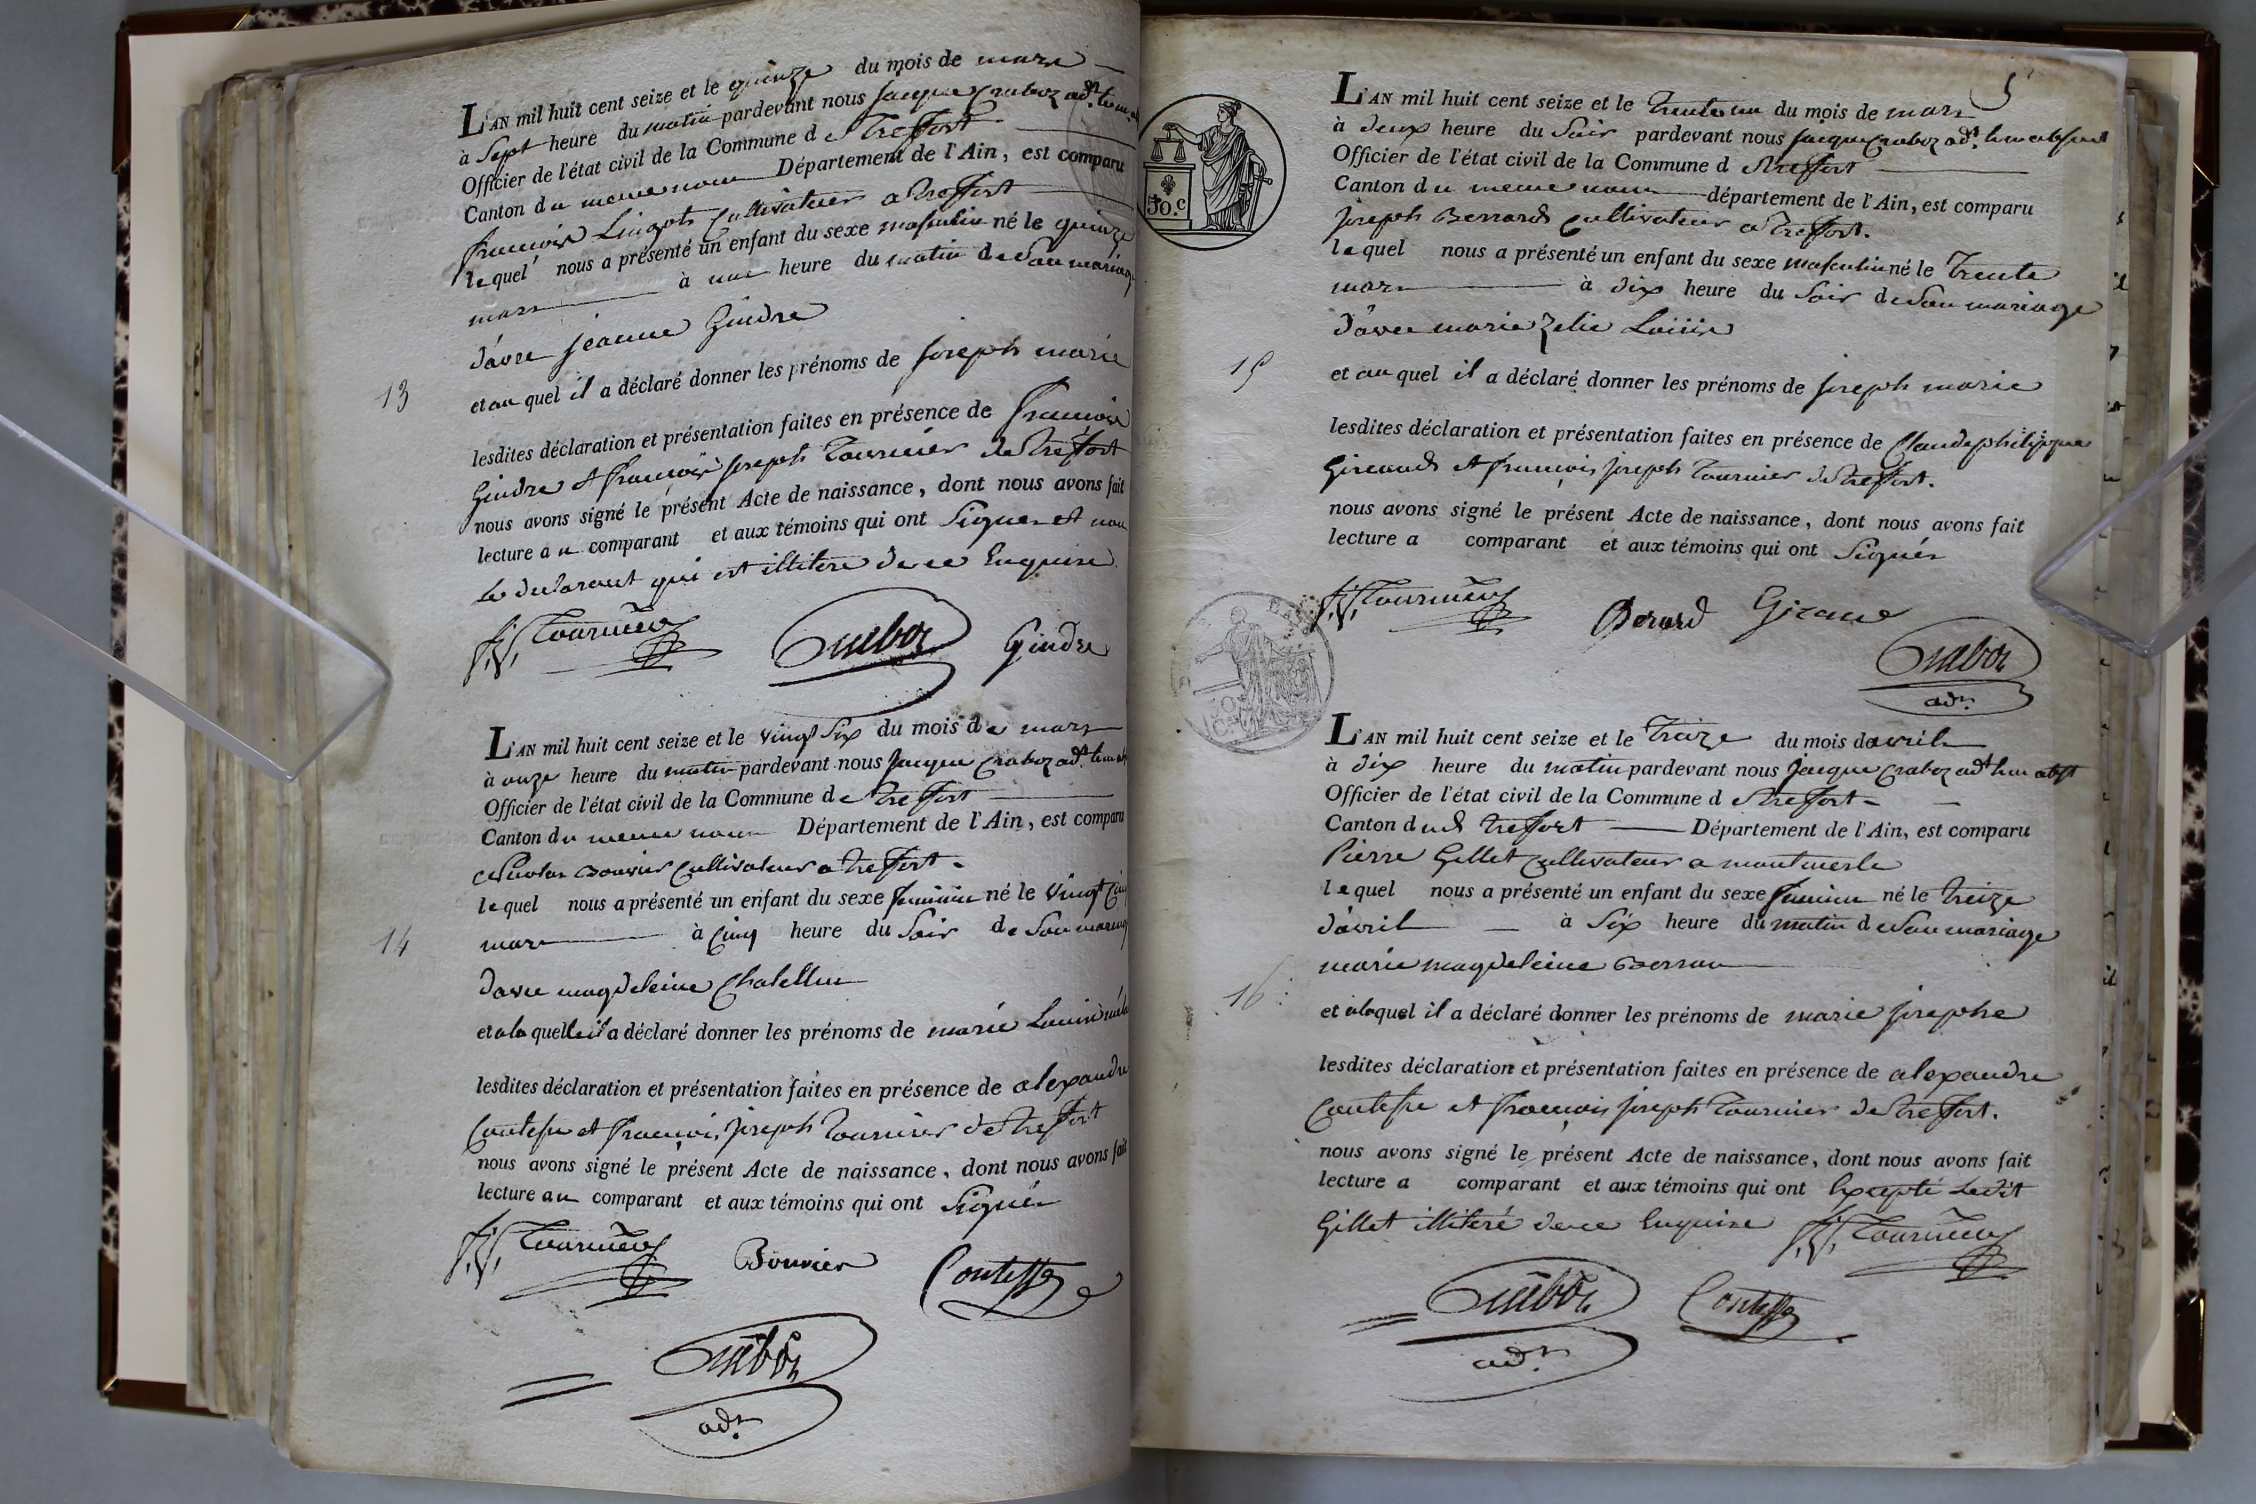 L'AN mil huit cent seize et le quinze du mois de mars
à Sept heure du matin pardevant nous Jacque Craboz adt. le m.
Officier de l'état civil de la Commune de Treffort
Canton du meme nom Département de l'Ain, est comparu
francois Lingot Cultivateur a Treffort
lequel nous a présenté un enfant du sexe masculin né le quinze
mars à une heure du matin de Son mariage
d'avec Jeanne Gindre
13
et au quel il a déclaré donner les prénoms de Joseph marie
lesdites déclaration et présentation faites en présence de francois
Gindre et francois Joseph Tournier de Treffort
nous avons signé le présent Acte de naissance, dont nous avons fait
lecture au comparant et aux témoins qui ont Signer et non
le declarant qui est illitere de ce Enquise
f. J. Tournier
Gindre
L'AN mil huit cent seize et le vingt Six du mois de mars
à onze heure du matin pardevant nous Jacque Craboz adt. le m ab
Officier de l'état civil de la Commune de Treffort
Canton du meme nom Département de l'Ain, est comparu
Bouvier Cultivateur a Treffort
lequel nous a présenté un enfant du sexe feminin né le vingt Cinq
mars à Cinq heure du Soir de Son mariage
14
d'avec magdeleine Chatellun
et a la quelle il a déclaré donner les prénoms de marie Louise
lesdites déclaration et présentation faites en présence de alexandre
Contesse et francois Joseph Tournier de Treffort
nous avons signé le présent Acte de naissance, dont nous avons fait
lecture au comparant et aux témoins qui ont Signés
f. J. Tournier
Bouvier
Contesse
adt.
5
50.c
L'AN mil huit cent seize et le trente un du mois de mars
à deux heure du Soir pardevant nous Jacque Craboz adt. le m absent
Officier de l'état civil de la Commune de Treffort
Canton du meme nom département de l'Ain, est comparu
Joseph Berrard Cultivateur a Treffort.
lequel nous a présenté un enfant du sexe masculin né le Trente
mars à dix heure du Soir de Son mariage
d'avec marie Zelie
15
et au quel il a déclaré donner les prénoms de Joseph marie
lesdites déclaration et présentation faites en présence de Claude philippe
Giraud et francois Joseph Tournier de Treffort.
nous avons signé le présent Acte de naissance, dont nous avons fait
lecture a comparant et aux témoins qui ont Signés
f. J. Tournier
Berard
adt.
L'AN mil huit cent seize et le Treize du mois d'avril
à dix heure du matin pardevant nous Jacque Craboz adt. le m abst
Officier de l'état civil de la Commune de Treffort
Canton dud Treffort Département de l'Ain, est comparu
Pierre Gillet Cultivateur a montmerle
lequel nous a présenté un enfant du sexe feminin né le Treize
d'avril à Six heure du matin de Son mariage
marie magdeleine
16
et a laquel il a déclaré donner les prénoms de marie Josephe
lesdites déclaration et présentation faites en présence de alexandre
Contesse et francois Joseph Tournier de Treffort.
nous avons signé le présent Acte de naissance, dont nous avons fait
lecture a comparant et aux témoins qui ont Excepté Ledit
Gillet illiteré de ce Enquise
f. J. Tournier
Contesse
adt.